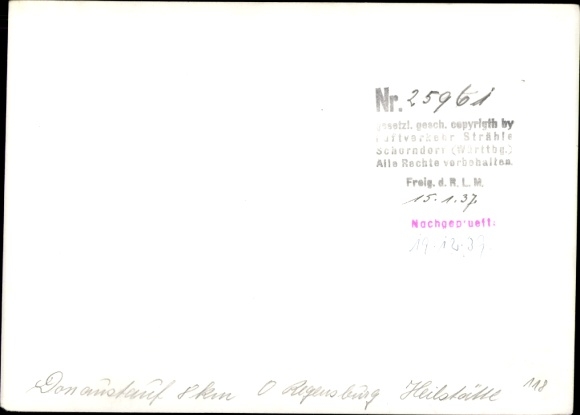 Nr. 25961
gesetzl. gesch. copyrigth by
Luftverkehr Strähle
Schorndorf (Württbg.)
Alle Rechte vorbehalten.
Freig. d. R. L. M.
15. 1. 37.
Nachgeprueft:
19. 12. 39
Donaustauf 8 km O Regensburg Heilstätte 118